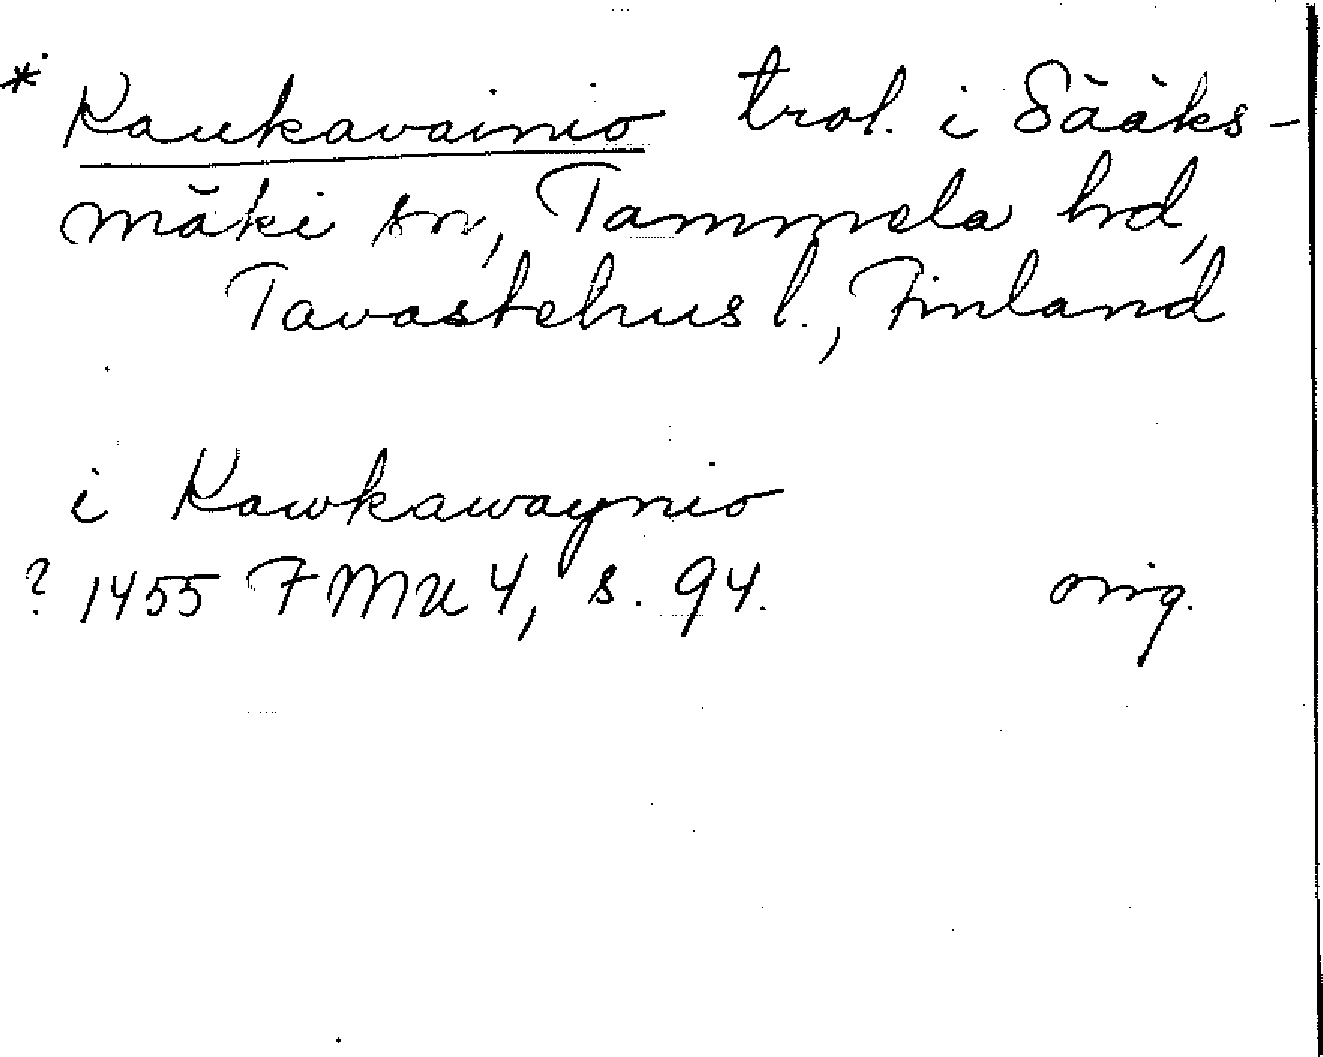 * Kaukavainio trol. i Sääks-
mäki sn, Tammela hd,
Tavastehus l., Finland
i Kawkawaynio
? 1455 FMU 4, s. 94. orig.